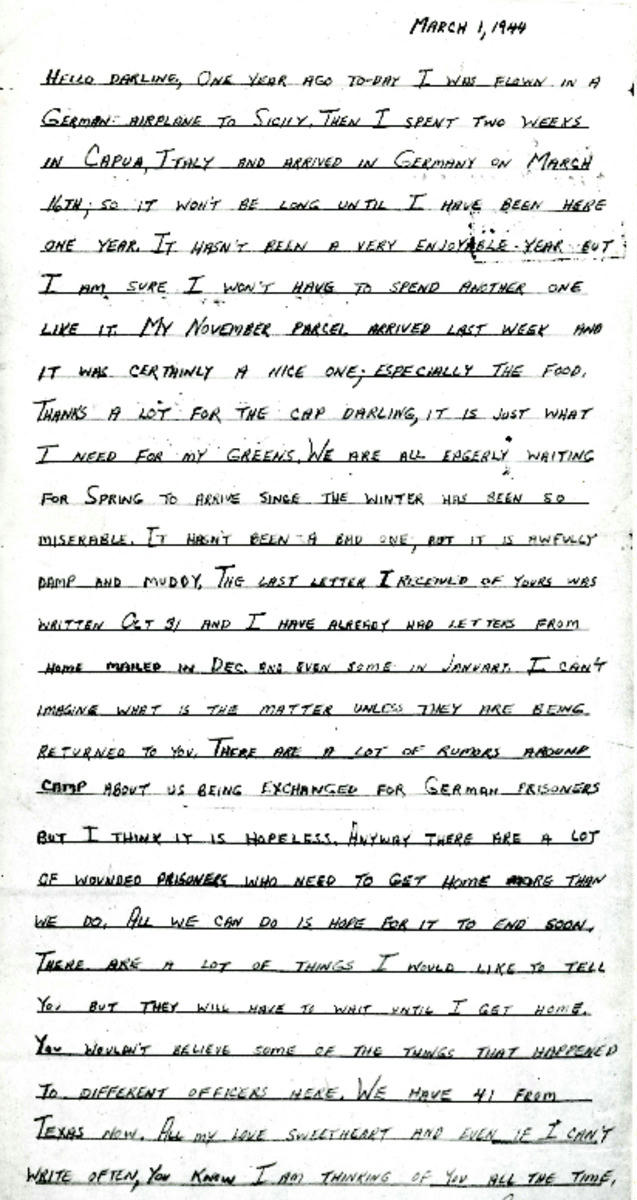 MARCH 1, 1944
HELLO DARLING, ONE YEAR AGO TO-DAY I WAS FLOWN IN A
GERMAN AIRPLANE TO SICILY. THEN I SPENT TWO WEEKS
IN CAPUA, ITALY AND ARRIVED IN GERMANY ON MARCH
16TH; SO IT WON'T BE LONG UNTIL I HAVE BEEN HERE
ONE YEAR. IT HASN'T BEEN A VERY ENJOYABLE YEAR BUT
I AM SURE I WON'T HAVE TO SPEND ANOTHER ONE
LIKE IT. MY NOVEMBER PARCEL ARRIVED LAST WEEK AND
IT WAS CERTAINLY A NICE ONE; ESPECIALLY THE FOOD.
THANKS A LOT FOR THE CAP DARLING, IT IS JUST WHAT
I NEED FOR MY GREENS. WE ARE ALL EAGERLY WAITING
FOR SPRING TO ARRIVE SINCE THE WINTER HAS BEEN SO
MISERABLE. IT HASN'T BEEN A BAD ONE, BUT IT IS AWFULLY
DAMP AND MUDDY. THE LAST LETTER I RECEIVED OF YOURS WAS
WRITTEN OCT 31 AND I HAVE ALREADY HAD LETTERS FROM
HOME MAILED IN DEC. AND EVEN SOME IN JANUARY. I CAN'T
IMAGINE WHAT IS THE MATTER UNLESS THEY ARE BEING
RETURNED TO YOU. THERE ARE A LOT OF RUMORS AROUND
CAMP ABOUT US BEING EXCHANGED FOR GERMAN PRISONERS
BUT I THINK IT IS HOPELESS. ANYWAY THERE ARE A LOT
OF WOUNDED PRISONERS WHO NEED TO GET HOME MORE THAN
WE DO. ALL WE CAN DO IS HOPE FOR IT TO END SOON.
THERE ARE A LOT OF THINGS I WOULD LIKE TO TELL
YOU BUT THEY WILL HAVE TO WAIT UNTIL I GET HOME.
YOU WOULDN'T BELIEVE SOME OF THE THINGS THAT HAPPENED
TO DIFFERENT OFFICERS HERE. WE HAVE 41 FROM
TEXAS NOW. ALL MY LOVE SWEETHEART AND EVEN IF I CAN'T
WRITE OFTEN, YOU KNOW I AM THINKING OF YOU ALL THE TIME.